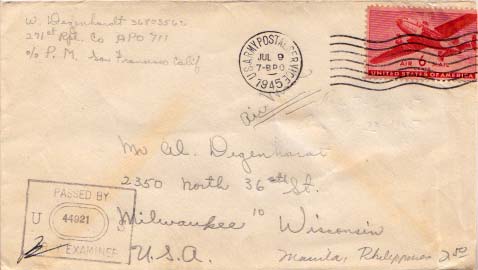 W. Degenhardt 36803562
271st Rpl. Co APO 711
c/o P. M. San Francisco Calif
U.S. ARMY POSTAL SERVICE
JUL 9
7-8PM
1945
AIR 6¢ MAIL
UNITED STATES OF AMERICA
Air
Mr Al. Degenhardt
2350 North 36th St.
Milwaukee 10 Wisconsin
U.S.A.
PASSED BY
U 44921 S
EXAMINER
Manila, Philippines 2.50